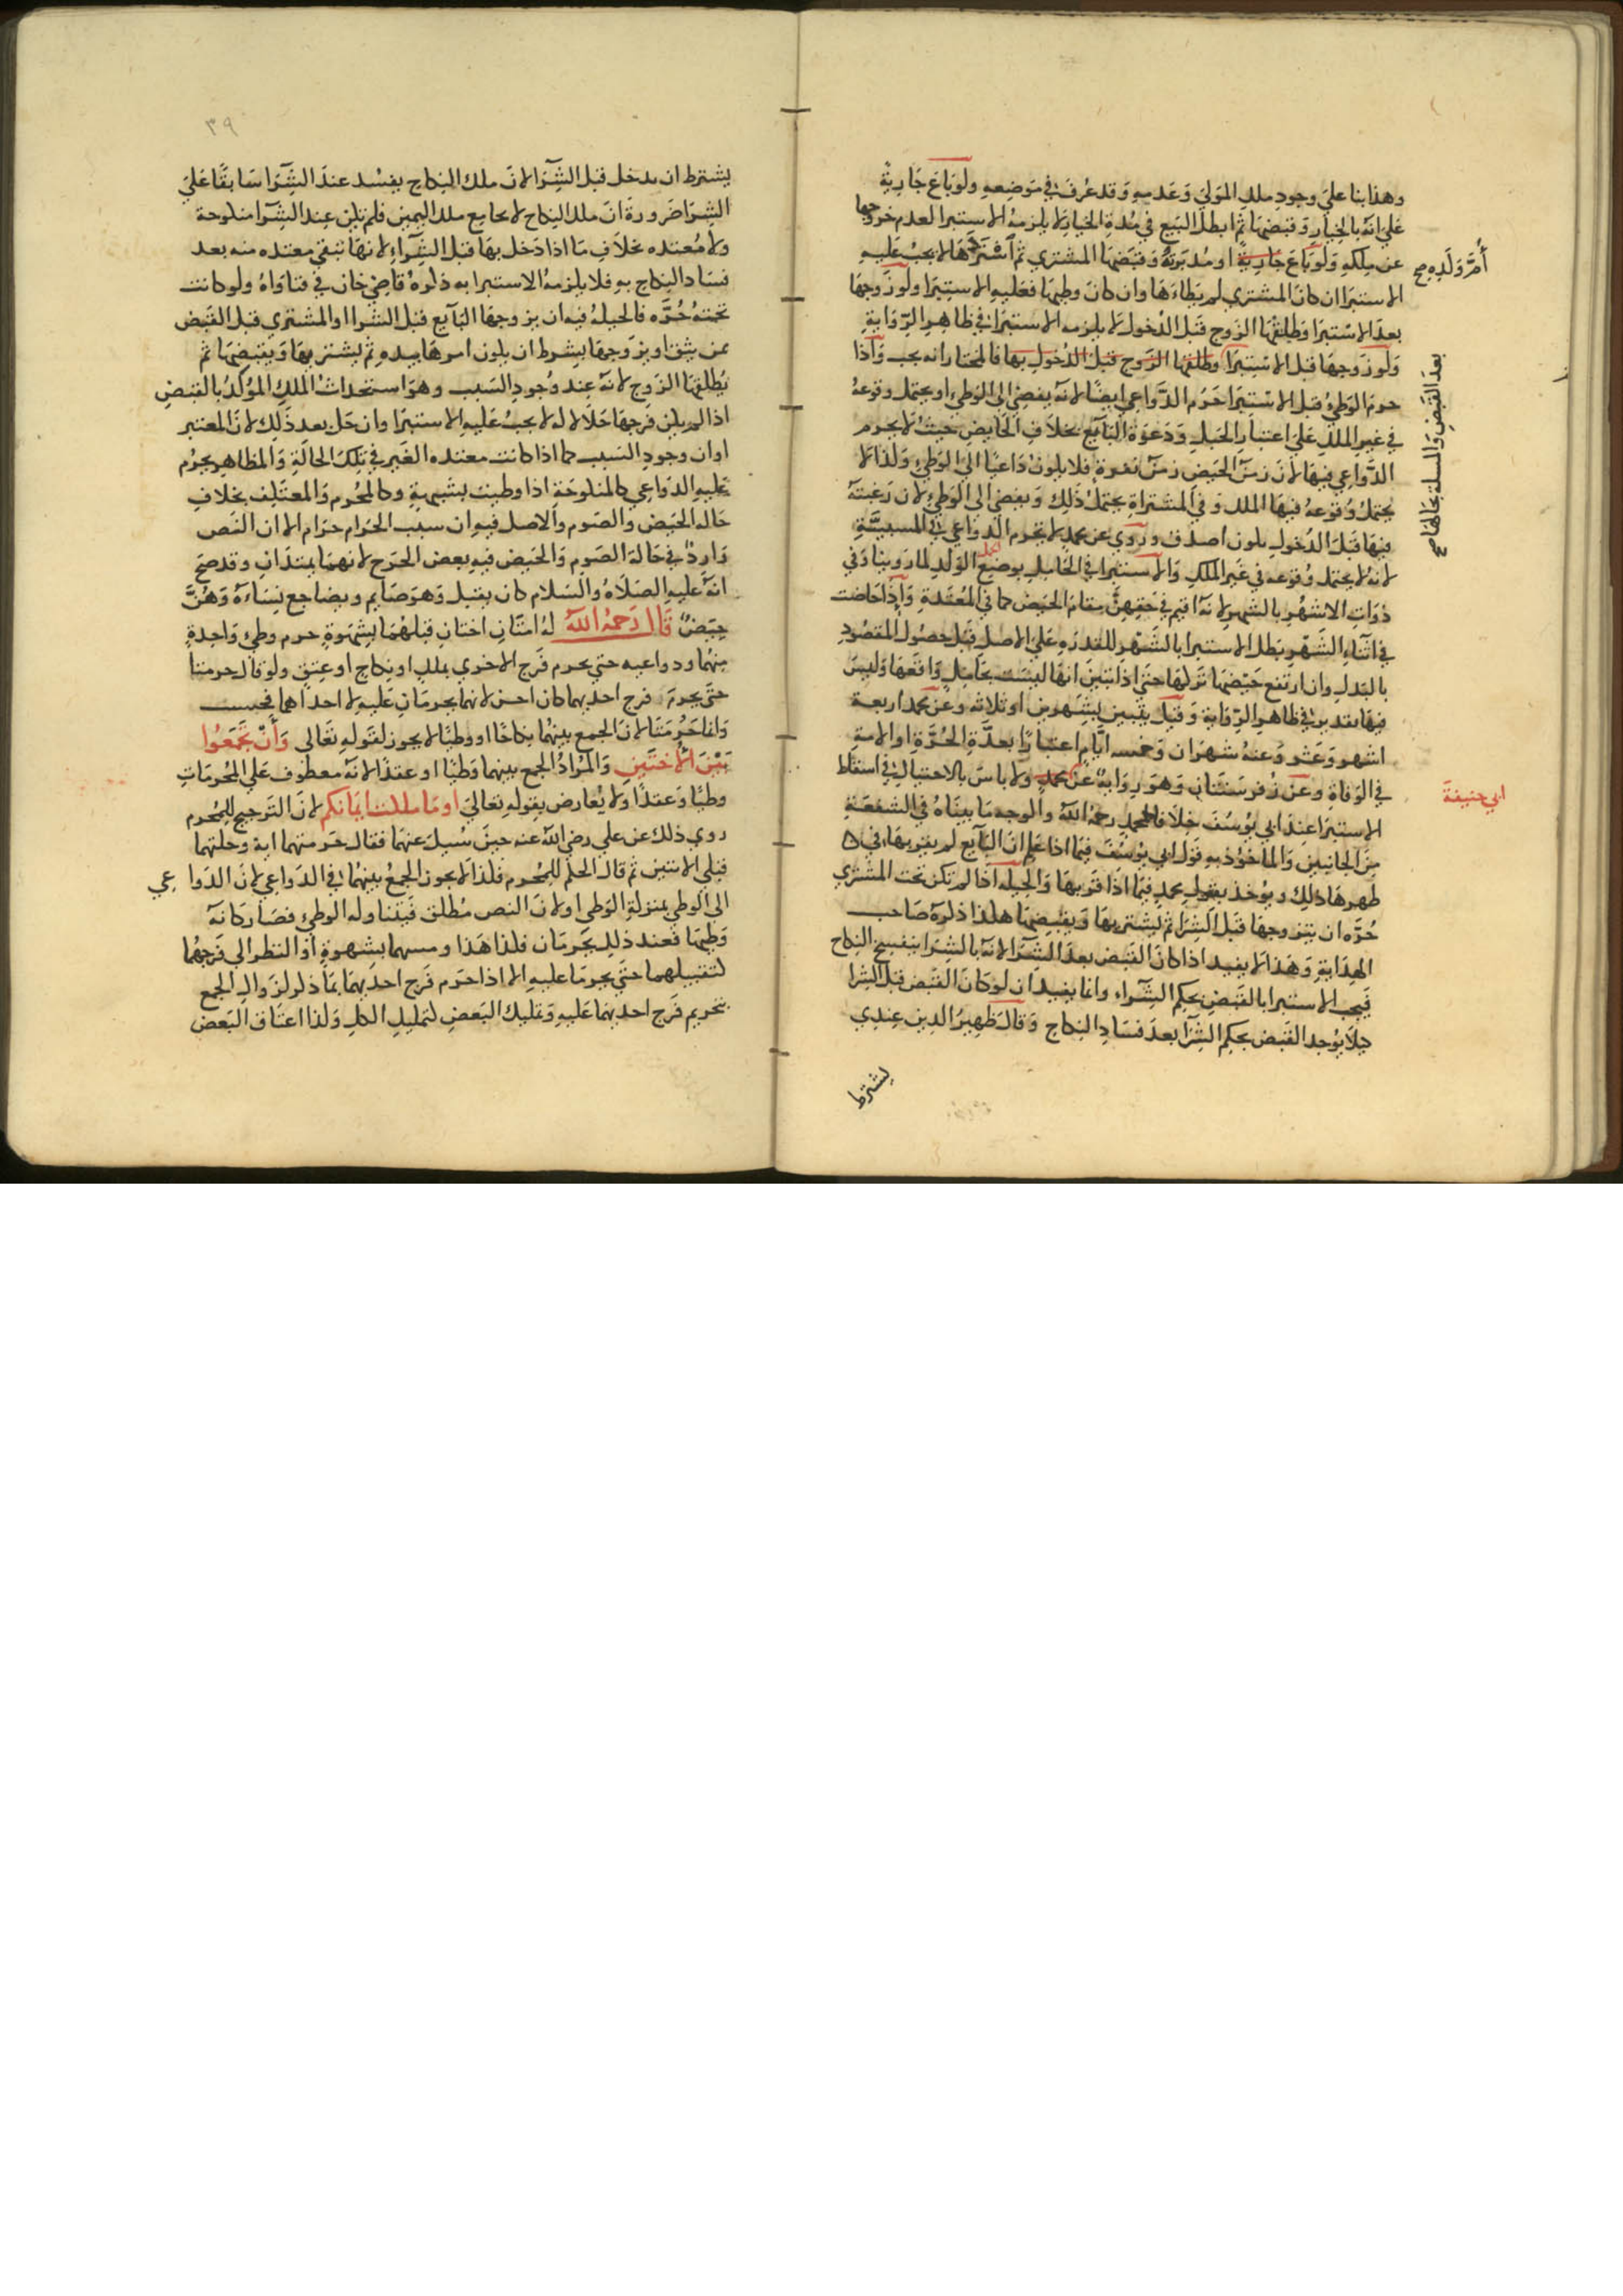 وهذا بنا على وجود ملك المولى وعدمه وقد عرف في موضعه ولو باع جارية
على انه بالخيار وقبضها ثم ابطل البيع في مدة الخيار لا يلزمه الاستبرا لعدم خروجها
عن ملكه ولو باع جارية او مدبرته وقبضها المشتري ثم استردها لا يجب عليه
أم ولده صح
الاستبرا ان كان المشتري لم يطاءها وان كان وطيها فعليه الاستبرا ولو زوجها
بعد الاستبرا وطلقها الزوج قبل الدخول لا يلزمه الاستبرا في ظاهر الرواية
ولو زوجها قبل الاستبرا وطلقها الزوج قبل الدخول بها فالمختار انه يجب واذا
بعد القبض والمسلة بحالها صح
حرم الوطئ قبل الاستبرا حرم الدواعي ايضا لانه يفضي الى الوطئ او يحتمل وقوعه
في غير الملك على اعتبار الحبل ودعوة البايع بخلاف الحايض حيث لا يحرم
الدواعي فيها لان زمن الحيض زمن نفرة فلا يكون داعيا الى الوطئ ولذا لا
يحتمل وقوعه فيها الملك وفي المشتراة يحتمل ذلك ويفضي الى الوطئ لان رغبته
فيها قبل الدخول يكون اصدق وروي عن محمد لا تحرم الدواعي في المسبية
لانه لا يحتمل وقوعه في غير الملك والاستبرا في الحامل بوضع الولد لما روينا وفي
ذوات الاشهر بالشهر لانه اقيم في حقهن مقام الحيض كما في المعتدة واذا حاضت
في اثناء الشهر بطل الاستبرا بالشهر للقدره على الاصل قبل حصول المقصود
بالبدل وان ارتفع حيضها تركها حتى اذا تبين انها ليست بحامل واقعها وليس
فيها تقدير في ظاهر الرواية وقيل يتبين بشهرين او ثلاثه وعن محمد اربعة
اشهر وعشر وعنه شهران وخمسه ايام اعتبارا بعدة الحرة او الامة
في الوفاة وعن زفر سنتان وهو رواية عن ولا باس بالاحتيال في اسقاط
ابي حنيفة
الاستبرا عند ابي يوسف خلافا لمحمد رحمه الله والوجه ما بيناه في الشفعة
من الجانبين والماخوذ به قول ابي يوسف فيما اذا علم ان البايع لم يقربها في
طهرها ذلك ويوخذ بقول محمد فيما اذا قربها والحيله اذا لم تكن تحت المشتري
حره ان يتزوجها قبل الشرا ثم يشتريها ويقبضها هكذا ذكره صاحب
الهداية وهذا لا يفيد اذا كان القبض بعد الشرا لانه بالشرا ينفسخ النكاح
فيجب الاستبرا بالقبض بحكم الشراء وانما يفيد ان لو كان القبض قبل الشرا
كيلا يوجد القبض بحكم الشرا بعد فساد النكاح وقال ظهير الدين عندي
يشترط
٣٩
يشترط ان يدخل قبل الشرا لان ملك النكاح يفسد عند الشرا سابقا على
الشرا ضرورة ان ملك النكاح لا يجامع ملك اليمين فلم تكن عند الشرا منكوحة
ولا معتده بخلاف ما اذا دخل بها قبل الشراء لانها تبقى معتده منه بعد
فساد النكاح به فلا يلزمه الاستبرا به ذكره قاضي خان في فتاواه ولو كانت
تحته حره فالحيلة فيه ان يزوجها البايع قبل الشرا او المشتري قبل القبض
ممن يثق او يزوجها بشرط ان يكون امرها بيده ثم يشتريها ويقبضها ثم
يطلقها الزوج لانه عند وجود السبب وهو استحداث الملك المؤكد بالقبض
اذا لم يكن فرجها حلالا له لا يجب عليه الاستبرا وان حل بعد ذلك لان المعتبر
اوان وجود السبب كما اذا كانت معتده الغير في تلك الحالة والمظاهر يحرم
عليه الدواعي كالمنكوحة اذا وطيت بشبهة وكالمحرم والمعتكف بخلاف
حاله الحيض والصوم والاصل فيه ان سبب الحرام حرام الا ان النص
وارد في حالة الصوم والحيض فيه بعض الحرج لانهما يمتدان وقد صح
انه عليه الصلاة والسلام كان يقبل وهو صايم ويضاجع نساءه وهن
حيض قال رحمه الله له امتان اختان قبلهما بشهوة حرم وطي واحدة
منهما ودواعيه حتى يحرم فرج الاخرى بملك او نكاح او عتق ولو قال حرمتا
حتى يحرم فرج احديهما كان احسن لانهما يحرمان عليه لا احداهما فحسب
وانما حرمتا لان الجمع بينهما نكاحا او وطيا لا يجوز لقوله تعالى وأن تجمعوا
بين الأختين والمراد الجمع بينهما وطيا او عقدا لانه معطوف على المحرمات
وطيا وعقدا ولا يعارض بقوله تعالى او ما ملكت ايمانكم لان الترجيح للمحرم
روي ذلك عن علي رضي الله عنه حين سيل عنهما فقال حرمتهما اية وحلتهما
قبلي الايتين ثم قال الحكم للمحرم فلذا لا يجوز الجمع بينهما في الدواعي لان الدواعي
الى الوطي بمنزلة الوطي او لان النص مطلق فيتناوله الوطئ فصار كانه
وطيها فعند ذلك يحرمان فلذا هذا ومسهما بشهوة او النظر الى فرجهما
لتقبيلهما حتى يحرما عليه الا اذا حرم فرج احديهما بما ذكر لزوال الجمع
بتحريم فرج احديهما عليه وتمليك البعض لتمليك الكل ولذا اعتاق البعض